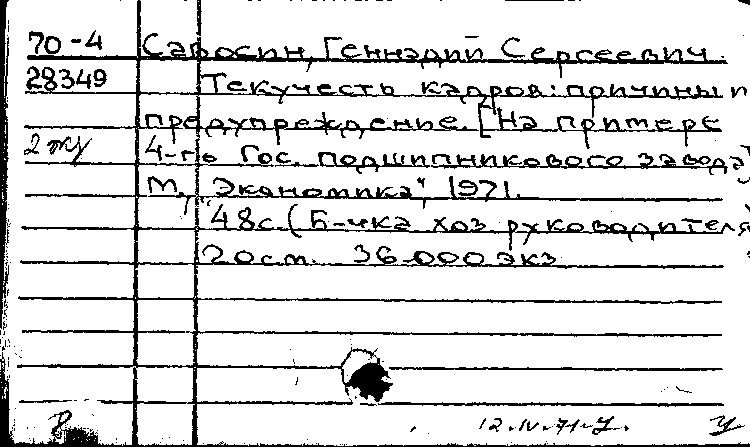 70-4 Савосин, Геннадий Сергеевич.
28349 Текучесть кадров: причины и
предупреждение. [На примере
2 экз 4-го Гос. подшипникового завода]
М., "Экономика", 1971.
48с. (Б-чка хоз. руководителя)
20см. 36.000 экз
8 12.IV.71-